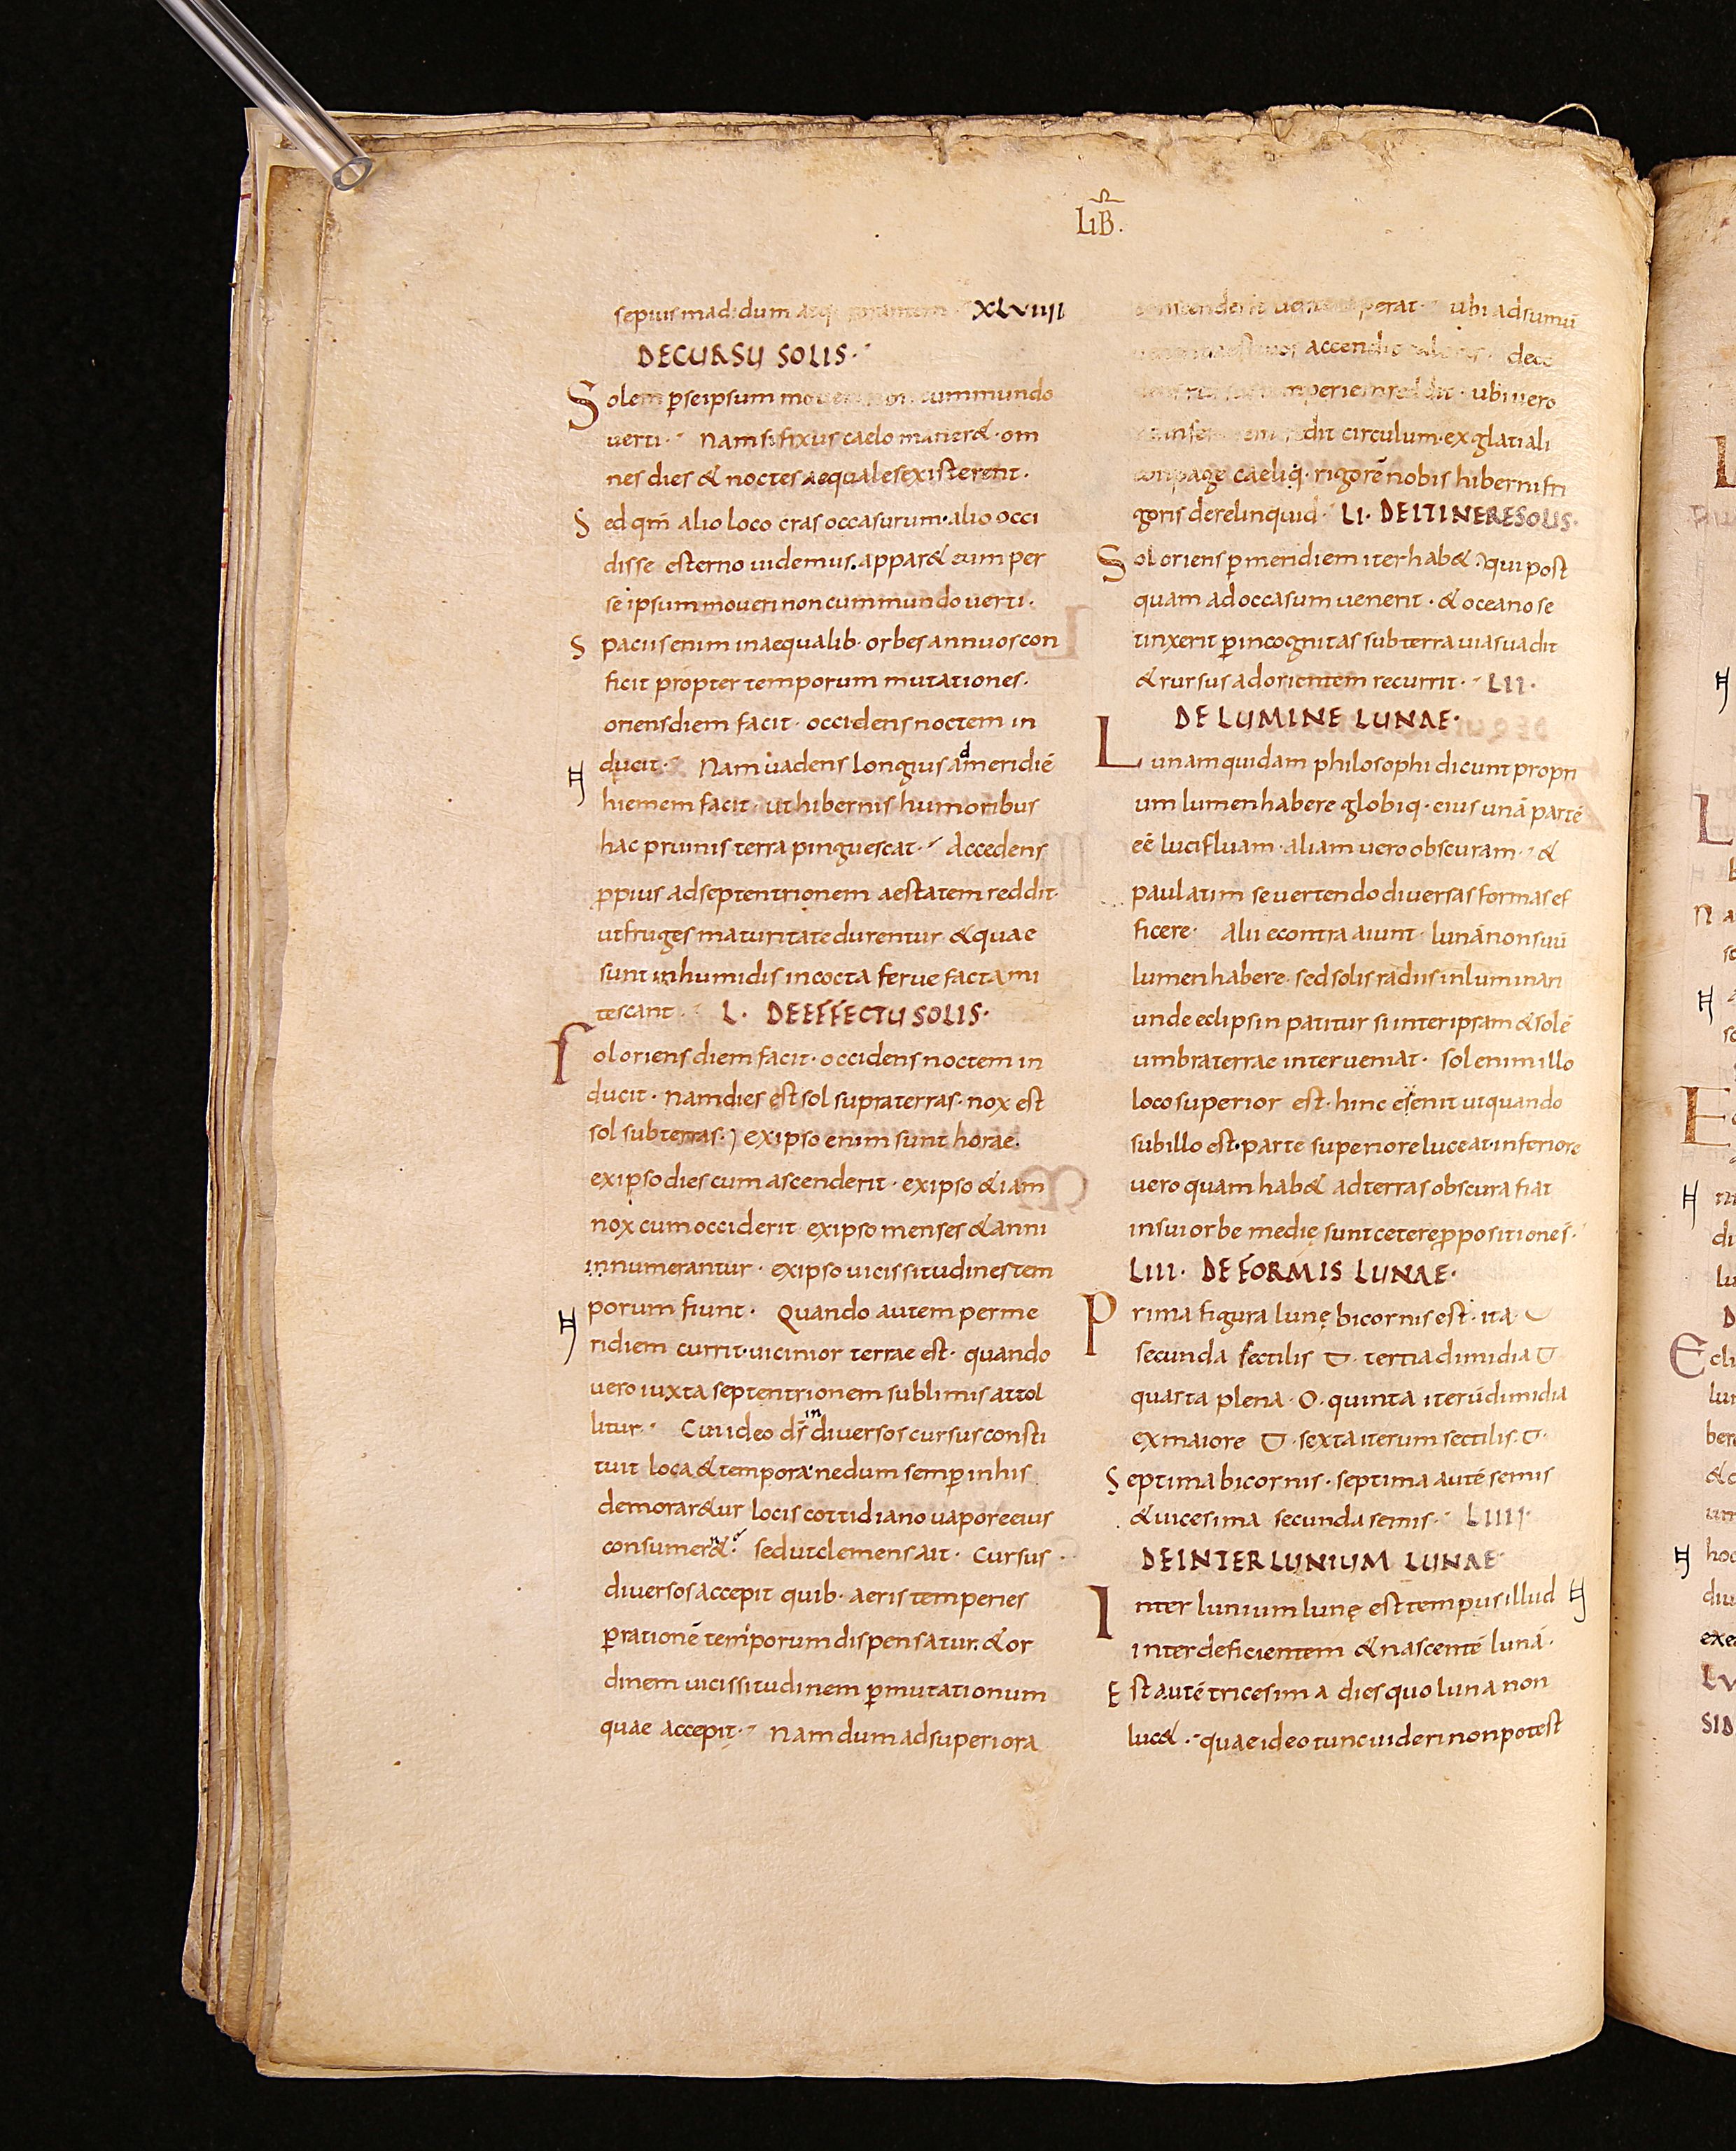 LIB.
sepius madidum XLVIIII
DE CURSU SOLIS.
Solem p̄ se ipsum cum mundo
uerti. Nam si fixus caelo maner&. om
nes dies & noctes aequales existerent.
Sed qm̄ alio loco cras occasurum. alio occi
disse esterno uidemus. appar& eum per
se ipsum moueri non cum mundo uerti.
Spaciis enim inaequalib. orbes annuos con
ficit propter temporum mutationes.
oriens diem facit. occidens noctem in
ducit. Nam uadens longius ad meridiē
hiemem facit. ut hibernis humoribus
hac pruinis terra pinguescat. Accedens
ꝓpius ad septentrionem aestatem reddit.
ut fruges maturitate durentur & quae
sunt in humidis incocta ferue facta mi
tescant. L. DE EFFECTU SOLIS.
Sol oriens diem facit. occidens noctem in
ducit. nam dies est sol supra terras. nox est
sol sub terras. ex ipso enim sunt horae.
ex ipso dies cum ascenderit. ex ipso &iam
nox cum occiderit ex ipso menses & anni
innumerantur. ex ipso uicissitudines tem
porum fiunt. Quando autem per me
ridiem currit. uicinior terrae est. quando
uero iuxta septentrionem sublimis attol
litur. Cui ideo ds̄ in diuersos cursus consti
tuit loca & tempora. ne dum semp̄ in his
demorar&ur locis cottidiano uapore eius
consumer&. sed ut clemens ait. Cursus
diuersos accepit quib. aeris temperies
p̄ rationē temporum dispensatur. & or
dinem uicissitudinem p̄mutationum
quae accepit. Nam dum ad superiora
perat. ubi ad sumū
accendit dece
periem reddit. ubi uero
dit circulum. ex glatiali
conpage caeliq. rigorē nobis hiberni fri
goris derelinquid. LI. DE ITINERE SOLIS.
Sol oriens p̄ meridiem iter hab& qui post
quam ad occasum uenerit. & oceano se
tinxerit p̄ incognitas sub terra uias uadit
& rursus ad orientem recurrit. LII.
DE LUMINE LUNAE.
Lunam quidam philosophi dicunt propri
um lumen habere globiq. eius unā partē
eē lucifluam. aliam uero obscuram. &
paulatim se uertendo diuersas formas ef
ficere. Alii econtra aiunt. lunā non suū
lumen habere. sed solis radiis inluminari
unde eclipsin patitur si inter ipsam & solē
umbra terrae interueniat. Sol enim illo
loco superior est. hinc euenit ut quando
sub illo est. parte superiore luceat. inferiore
uero quam hab& ad terras obscura fiat
in sui orbe medię sunt ceterę ꝓpositiones.
LIII. DE FORMIS LUNAE.
Prima figura lunę bicornis est. ita
secunda sectilis. tertia dimidia
quarta plena. O. quinta iterū dimidia
ex maiore. sexta iterum sectilis.
Septima bicornis. septima autē semis
& uicesima secunda semis. LIIII.
DE INTERLUNIUM LUNAE
Interlunium lunę est tempus illud
inter deficientem & nascentē lunā.
Est autē tricesima dies quo luna non
luc&. quae ideo tunc uideri non potest